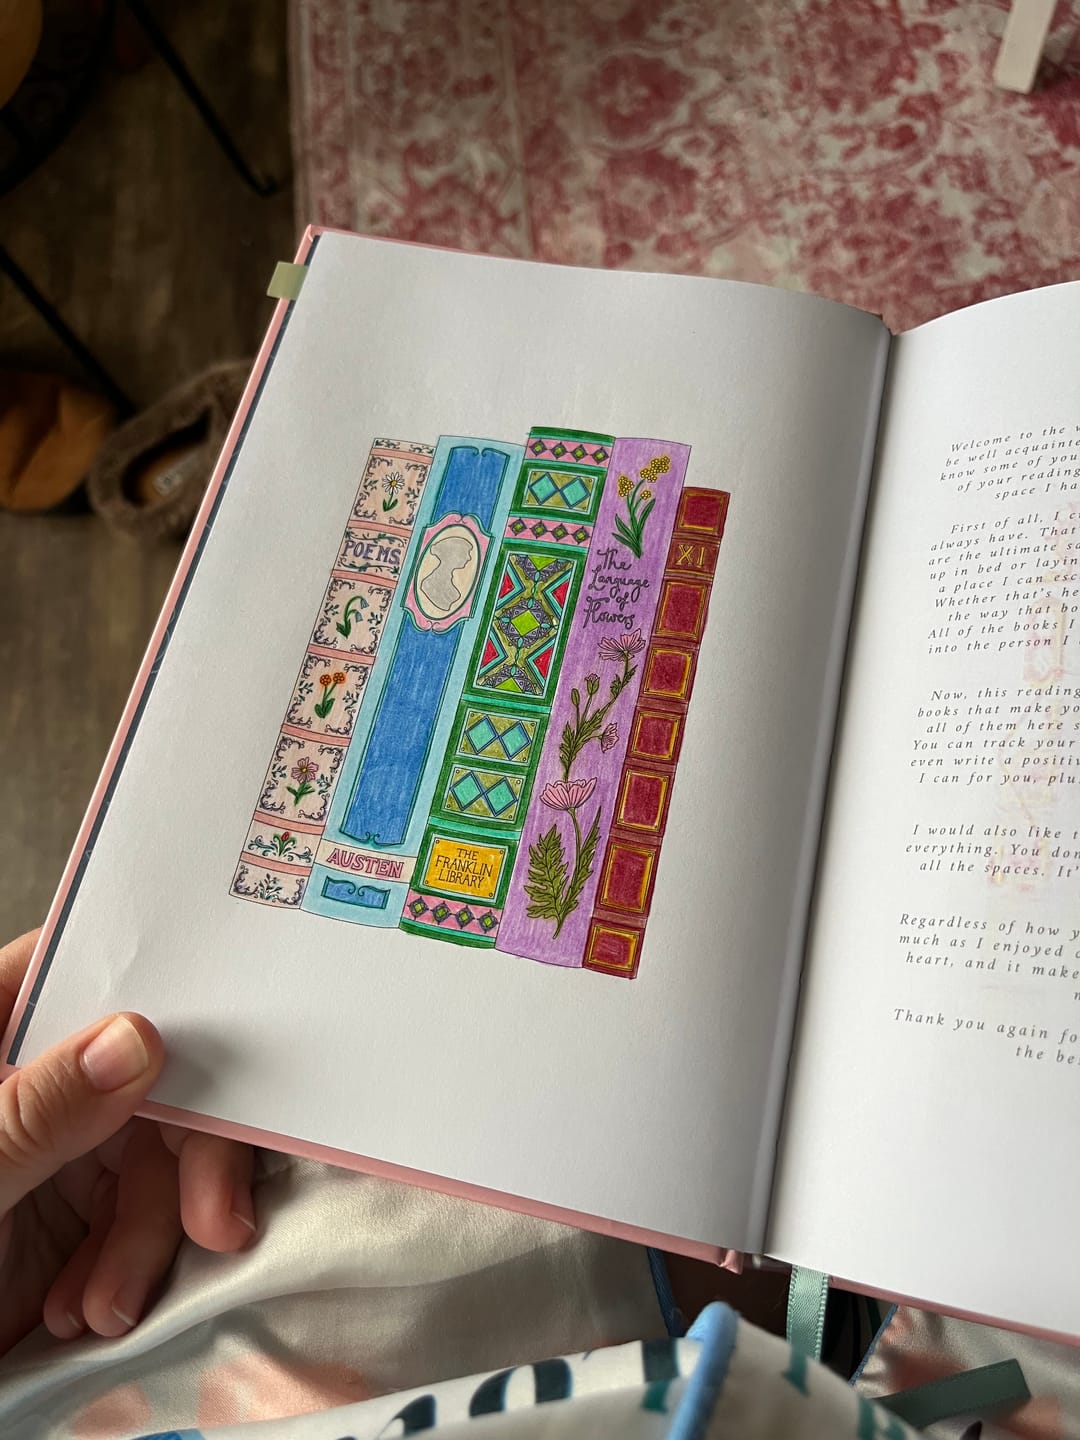 POEMS
AUSTEN
THE
FRANKLIN
LIBRARY
The
Language
of
Flowers
XI
Welcome to the w
be well acquainte
know some of you
of your reading
space I ha
First of all, I c
always have. That
are the ultimate sa
up in bed or layin
a place I can esc
Whether that's he
the way that bo
All of the books I
into the person I
Now, this reading
books that make yo
all of them here s
You can track your
even write a positiv
I can for you, plu
I would also like t
everything. You don
all the spaces. It'
Regardless of how y
much as I enjoyed c
heart, and it make
Thank you again fo
the be